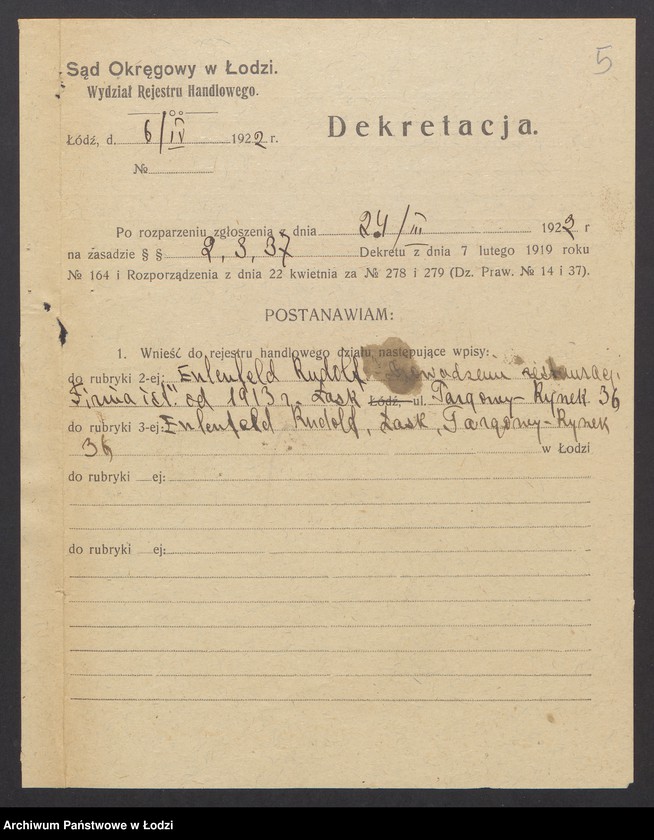 5
Sąd Okręgowy w Łodzi.
Wydział Rejestru Handlowego.
Łódź, d. 6/IV 1922 r.
Dekretacja.
№
Po rozparzeniu zgłoszenia z dnia 24/III 1922 r
na zasadzie § § 2, 3, 37 Dekretu z dnia 7 lutego 1919 roku
№ 164 i Rozporządzenia z dnia 22 kwietnia za № 278 i 279 (Dz. Praw. № 14 i 37).
POSTANAWIAM:
1. Wnieść do rejestru handlowego działu, następujące wpisy:
do rubryki 2-ej: Enlenfeld Rudolf
Firma ist. od 1913 r. Łask Łódź, ul. Targowy-Rynek 36
do rubryki 3-ej: Enlenfeld Rudolf, Łask, Targowy-Rynek
36 w Łodzi
do rubryki ej:
do rubryki ej:
Archiwum Państwowe w Łodzi